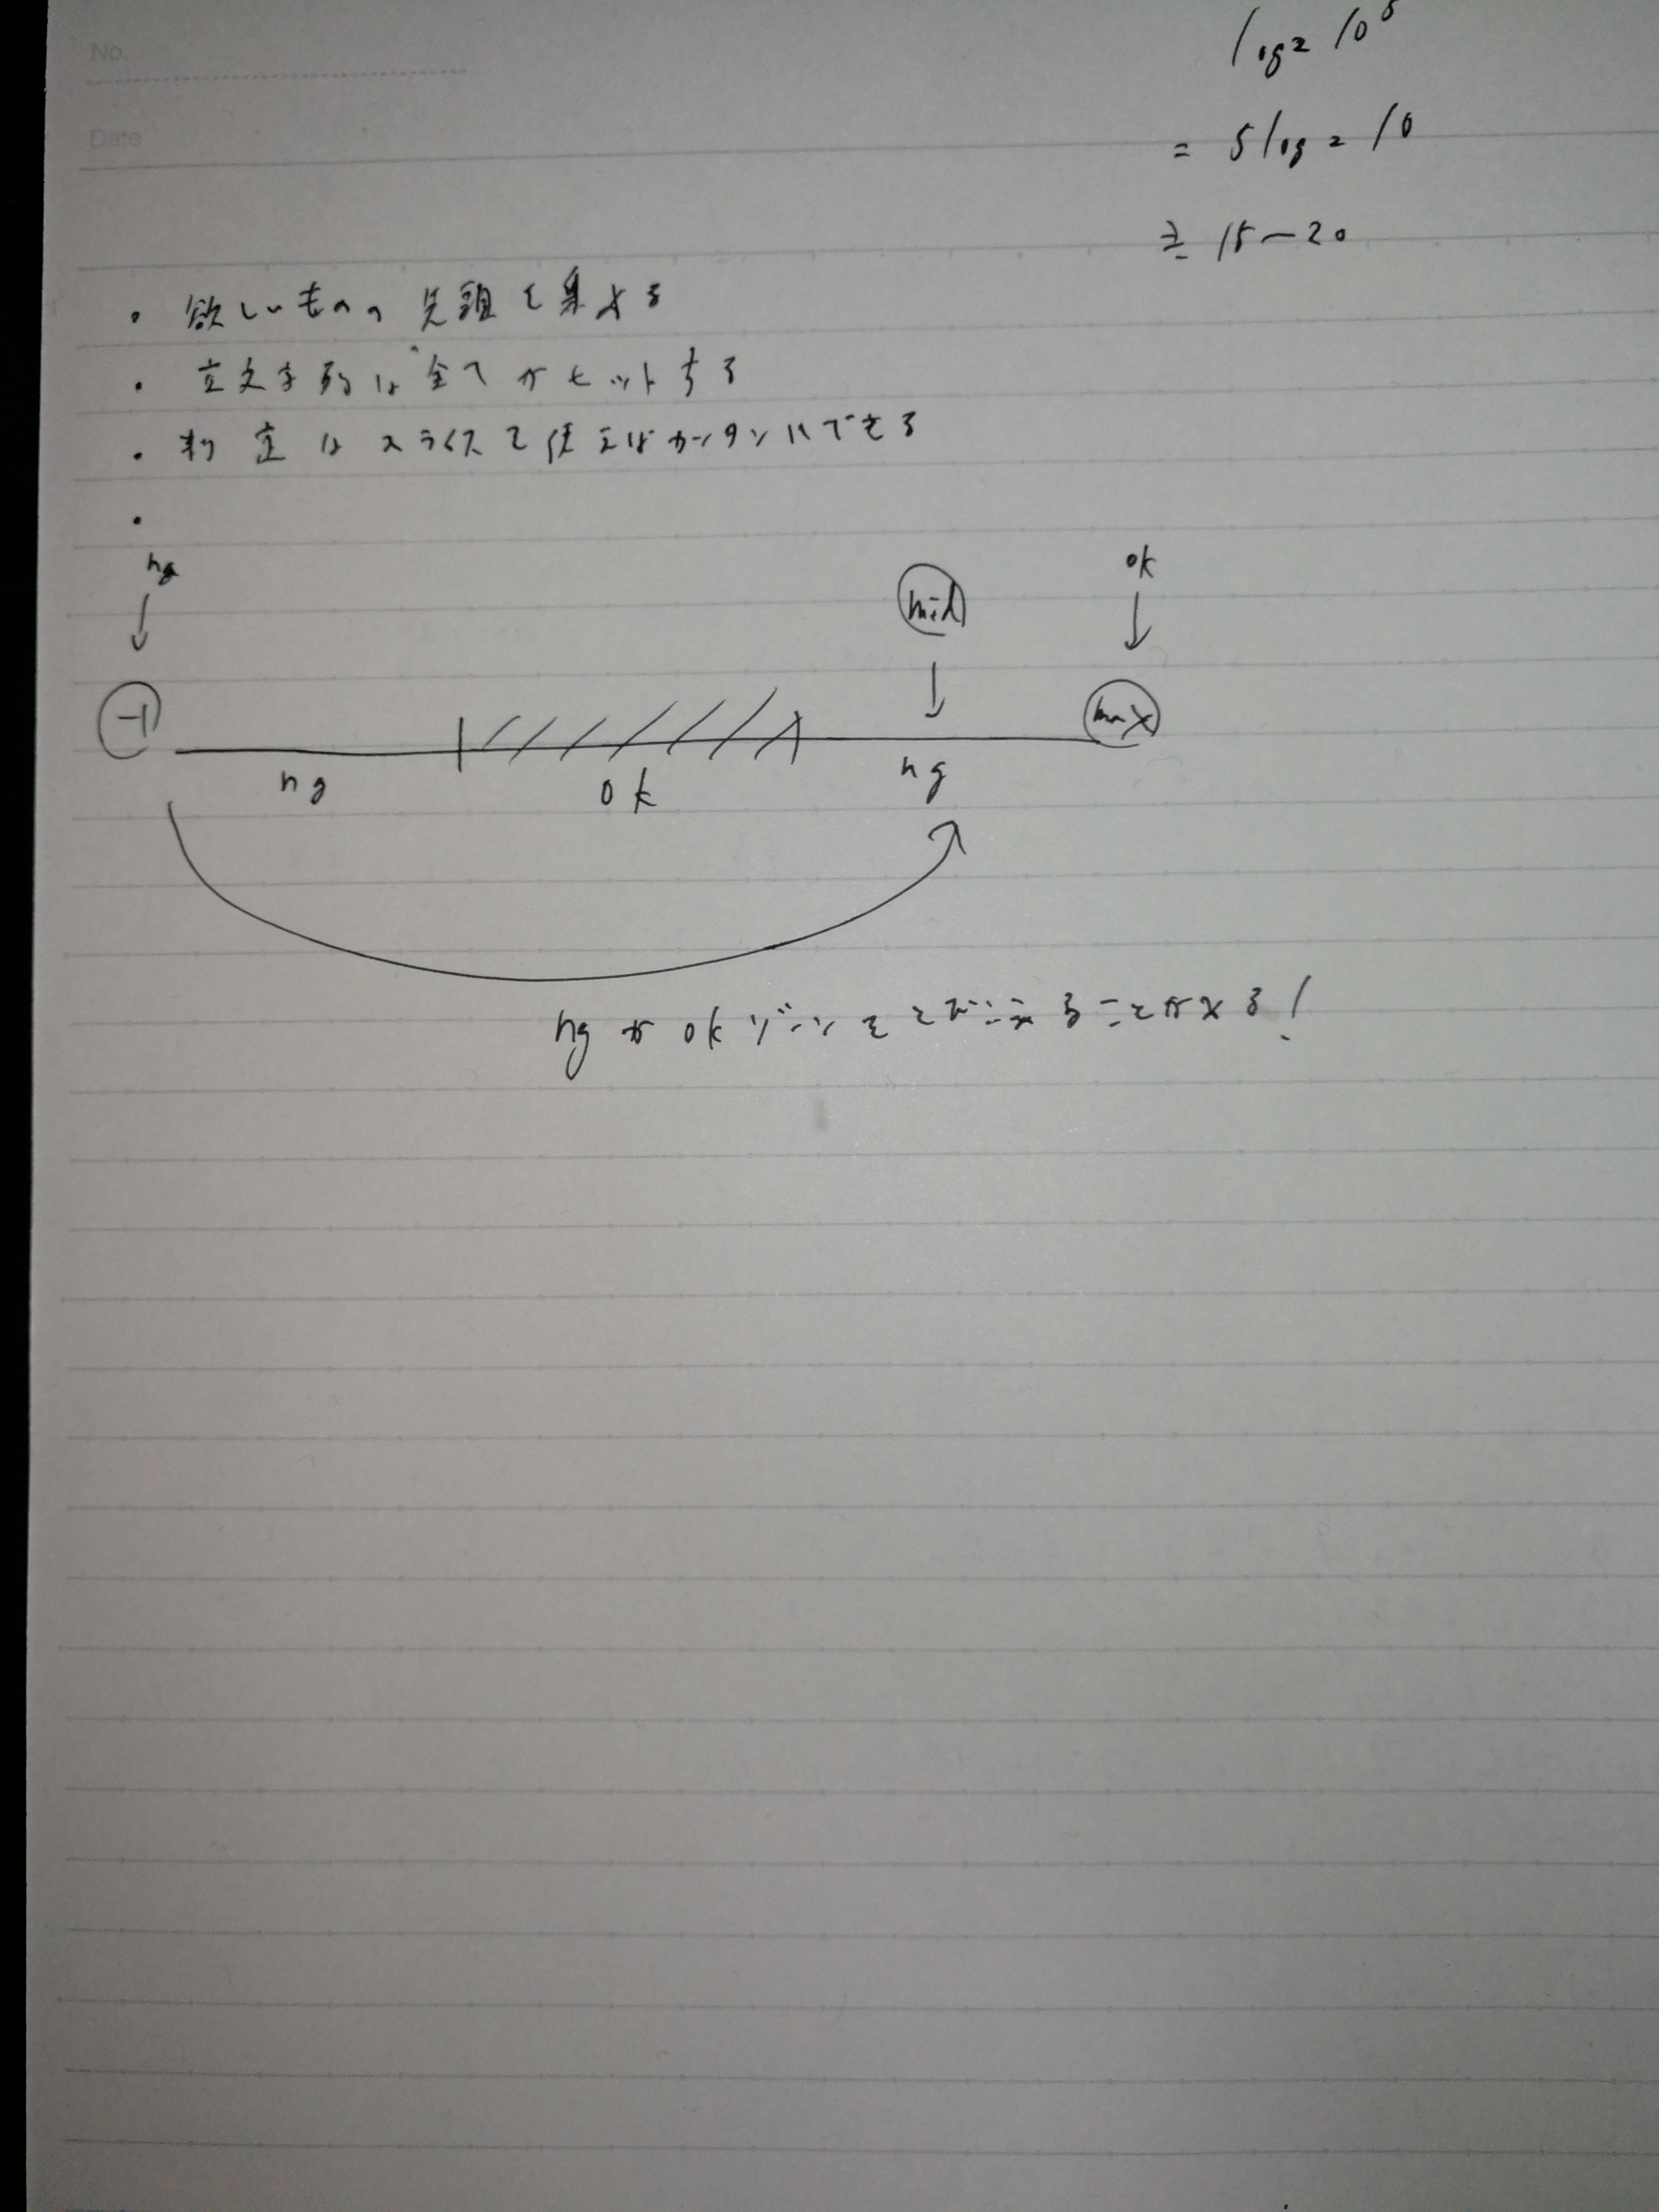 No.
Date
log₂ 10⁵
= 5 log₂ 10
≒ 15〜20
・欲しいものの先頭を集める
・空文字列は全てがヒットする
・判定はスライスで使えばカンタンにできる
・
ng
mid
ok
-1
max
ng
ok
ng
ngがokゾーンをとびこえることがある!